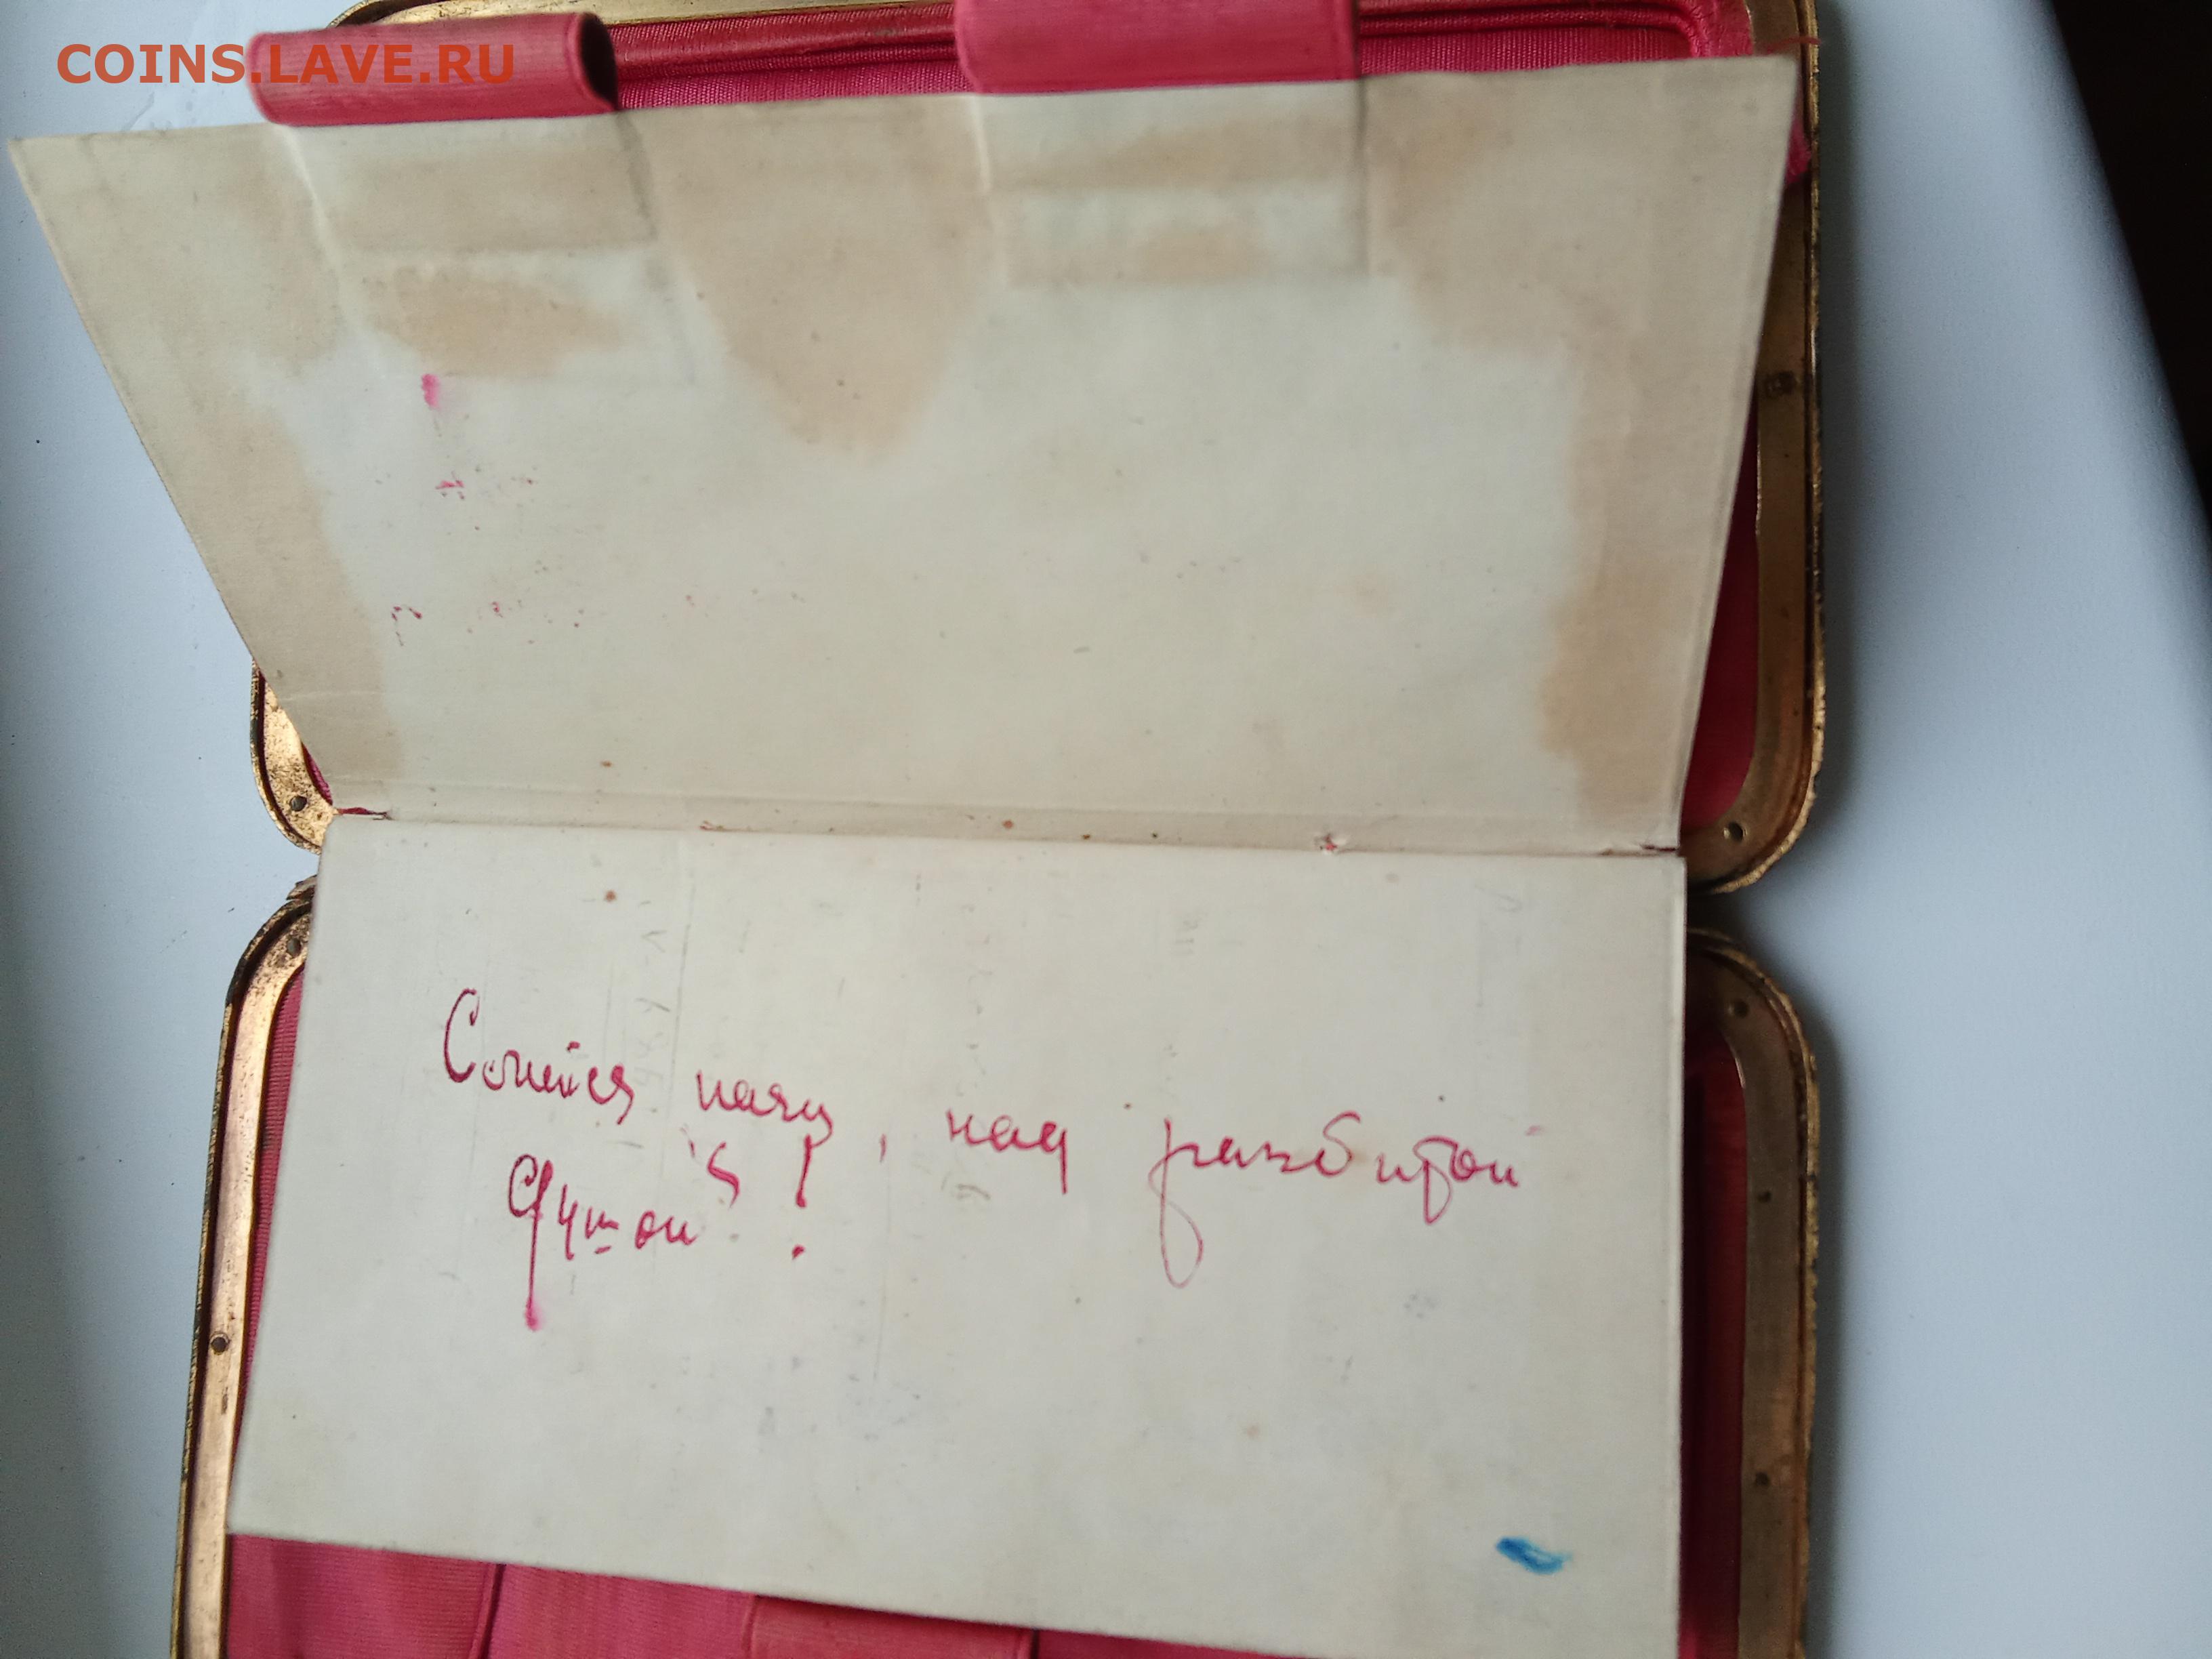 COINS.LAVE.RU
Смейся паяц, над разбитой
душой!